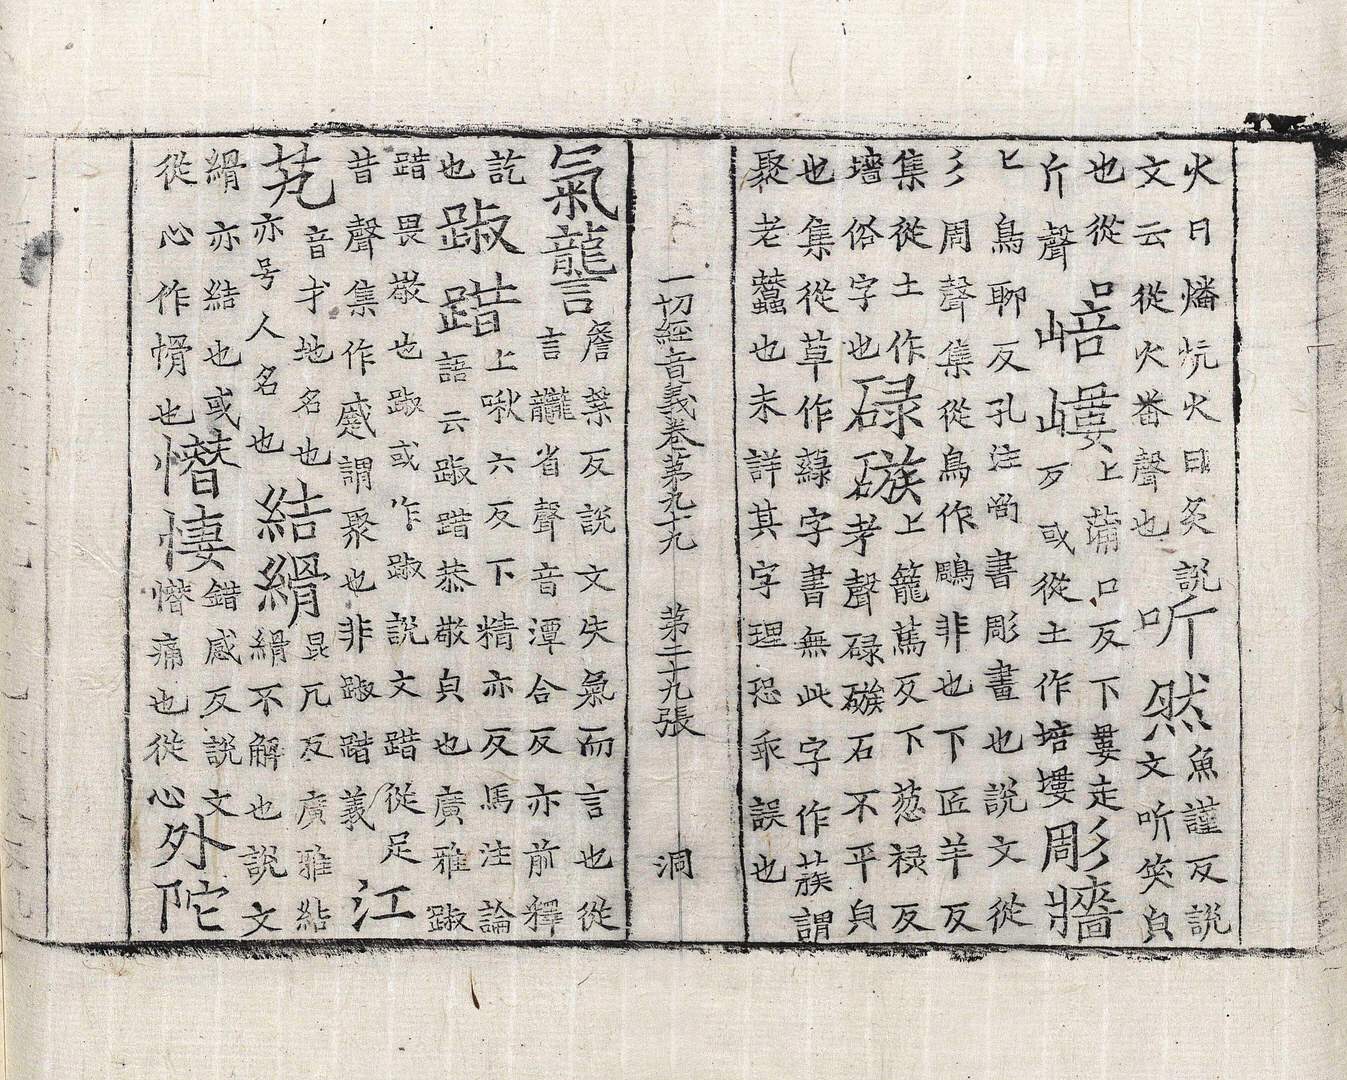 火曰燔炕火曰炙說文云從火番聲也听然魚謹反說文听笑皃
也從口斤聲㟝嶁上蒲口反下婁走反或從土作培塿彫牆
上鳥聊反孔注尚書彫畫也說文從彡周聲集從鳥作鵰非也下匠羊反
集從土作墻俗字也碌䃚上籠篤反下蔥禄反考聲碌䃚石不平皃
也集從草作字書無此字作蔟謂聚老蠶也未詳其字理恐乖誤也
一切經音義卷第九十九 第二十九張 洞
氣讋詹葉反說文失氣而言也從言龖省聲音潭合反亦前釋
訖也踧踖上啾六反下精亦反馬注論語云踧踖恭敬皃也廣雅踧
踖畏敬也踧或作踧說文踖從足昔聲集作蹙謂聚也非踧踖義江
艽音才地名也亦号人名也結縎昆兀反廣雅結縎不解也說文
縎亦結也或從心作愲也憯悽錯感反說文憯痛也從心外陀